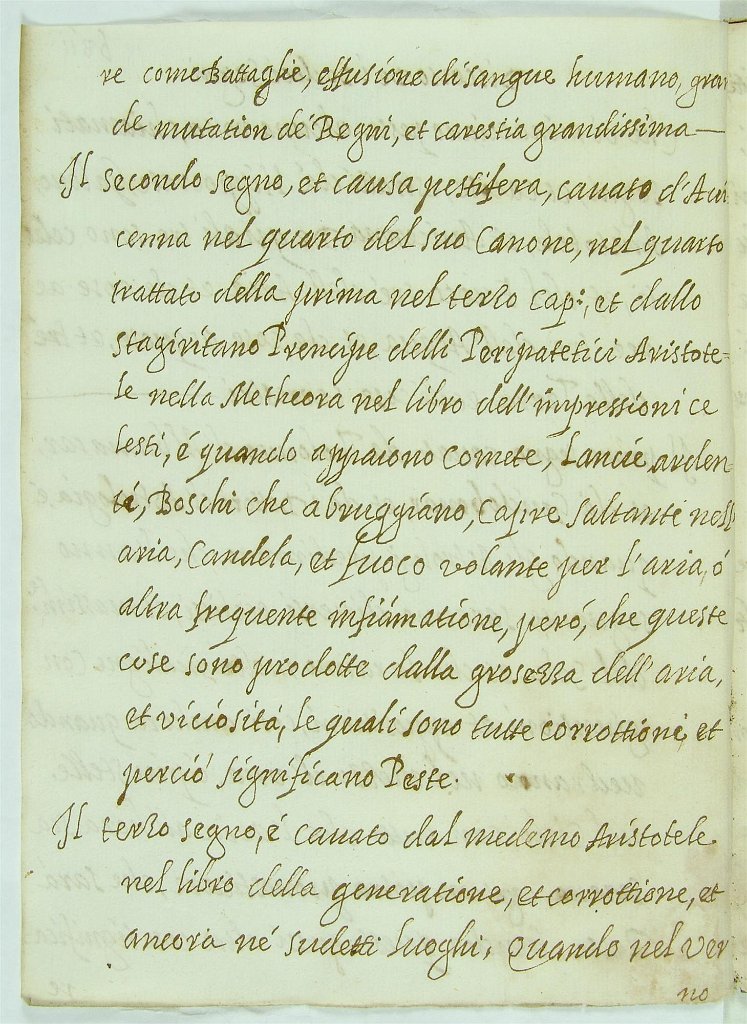 re come Battaglie, effusione di sangue humano, gran
de mutation de' Regni, et carestia grandissima —
Il secondo segno, et causa pestifera, cavato d'Avi
cenna nel quarto del suo Canone, nel quarto
trattato della prima nel terzo cap:, et dallo
stagiritano Prencipe delli Peripatetici Aristote-
le nella Metheora nel libro dell'impressioni ce
lesti, é quando appaiono Comete, Lancie arden
ti, Boschi che abruggiano, Capre saltante nell
aria, Candela, et fuoco volante per l'aria, ó
altra frequente infiámatione, peró, che queste
cose sono prodotte dalla grosezza dell'aria,
et viciositá, le quali sono tutte corrottioni, et
perció significano Peste.
Il terzo segno, é cavato dal medemo Aristotele
nel libro della generatione, et corrottione, et
ancora né sudetti luoghi, Quando nel ver
no